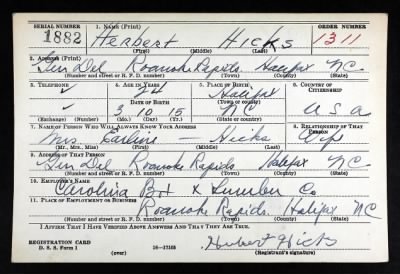 SERIAL NUMBER 1. NAME (Print) ORDER NUMBER
1882 Herbert Hicks 1311
(First) (Middle) (Last)
2. ADDRESS (Print)
Gen Del Roanoke Rapids Halifax N.C.
(Number and street or R. F. D. number) (Town) (County) (State)
3. TELEPHONE 4. AGE IN YEARS 5. PLACE OF BIRTH 6. COUNTRY OF CITIZENSHIP
Halifax
(Town or county)
DATE OF BIRTH
3 10 15 NC U S A
(Exchange) (Number) (Mo.) (Day) (Yr.) (State or country)
7. NAME OF PERSON WHO WILL ALWAYS KNOW YOUR ADDRESS 8. RELATIONSHIP OF THAT PERSON
Mrs. Earline — Hicks Wife
(Mr., Mrs., Miss) (First) (Middle) (Last)
9. ADDRESS OF THAT PERSON
Gen Del Roanoke Rapids Halifax NC
(Number and street or R. F. D. number) (Town) (County) (State)
10. EMPLOYER'S NAME
Carolina Box & Lumber Co
11. PLACE OF EMPLOYMENT OR BUSINESS
Roanoke Rapids Halifax NC
(Number and street or R. F. D. number) (Town) (County) (State)
I AFFIRM THAT I HAVE VERIFIED ABOVE ANSWERS AND THAT THEY ARE TRUE.
REGISTRATION CARD
D. S. S. Form 1 16—17105 Herbert Hicks
(over) (Registrant's signature)